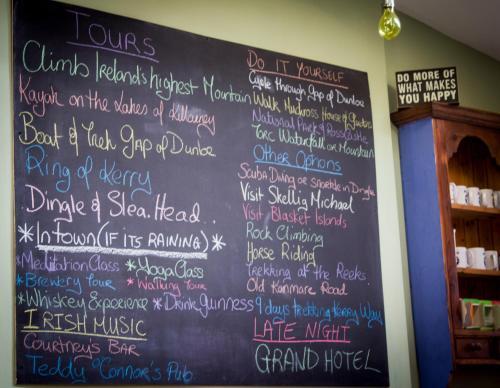 TOURS
Climb Ireland's highest Mountain
Kayak on the Lakes of Killarney
Boat & Trek Gap of Dunloe
Ring of Kerry
Dingle & Slea. Head...
*IN TOWN (IF ITS RAINING)*
*Meditation Class *Yoga Class
*Brewery Tour *Walking Tour
*Whiskey Experience *Drink Guinness
IRISH MUSIC
COURTNEY'S BAR
Teddy O'Connor's Pub
DO IT YOURSELF
Cycle through Gap of Dunloe
Walk Muckross House & Gardens
National Park & Ross Castle
Torc Waterfall or Mountain
Other Options
Scuba Diving or snorkle in Dingle
Visit Skellig Michael
Visit Blasket Islands
Rock Climbing
Horse Riding
Trekking at the Reeks
Old Kenmare Road
9 days trekking Kerry Way
LATE NIGHT
GRAND HOTEL
DO MORE OF
WHAT MAKES
YOU HAPPY